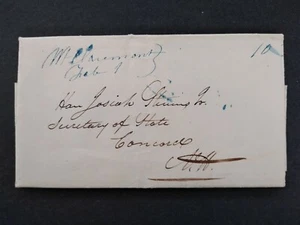 W. Claremont
Feb 1
10
Hon Josiah Stevens Jr.
Secretary of State
Concord
N.H.